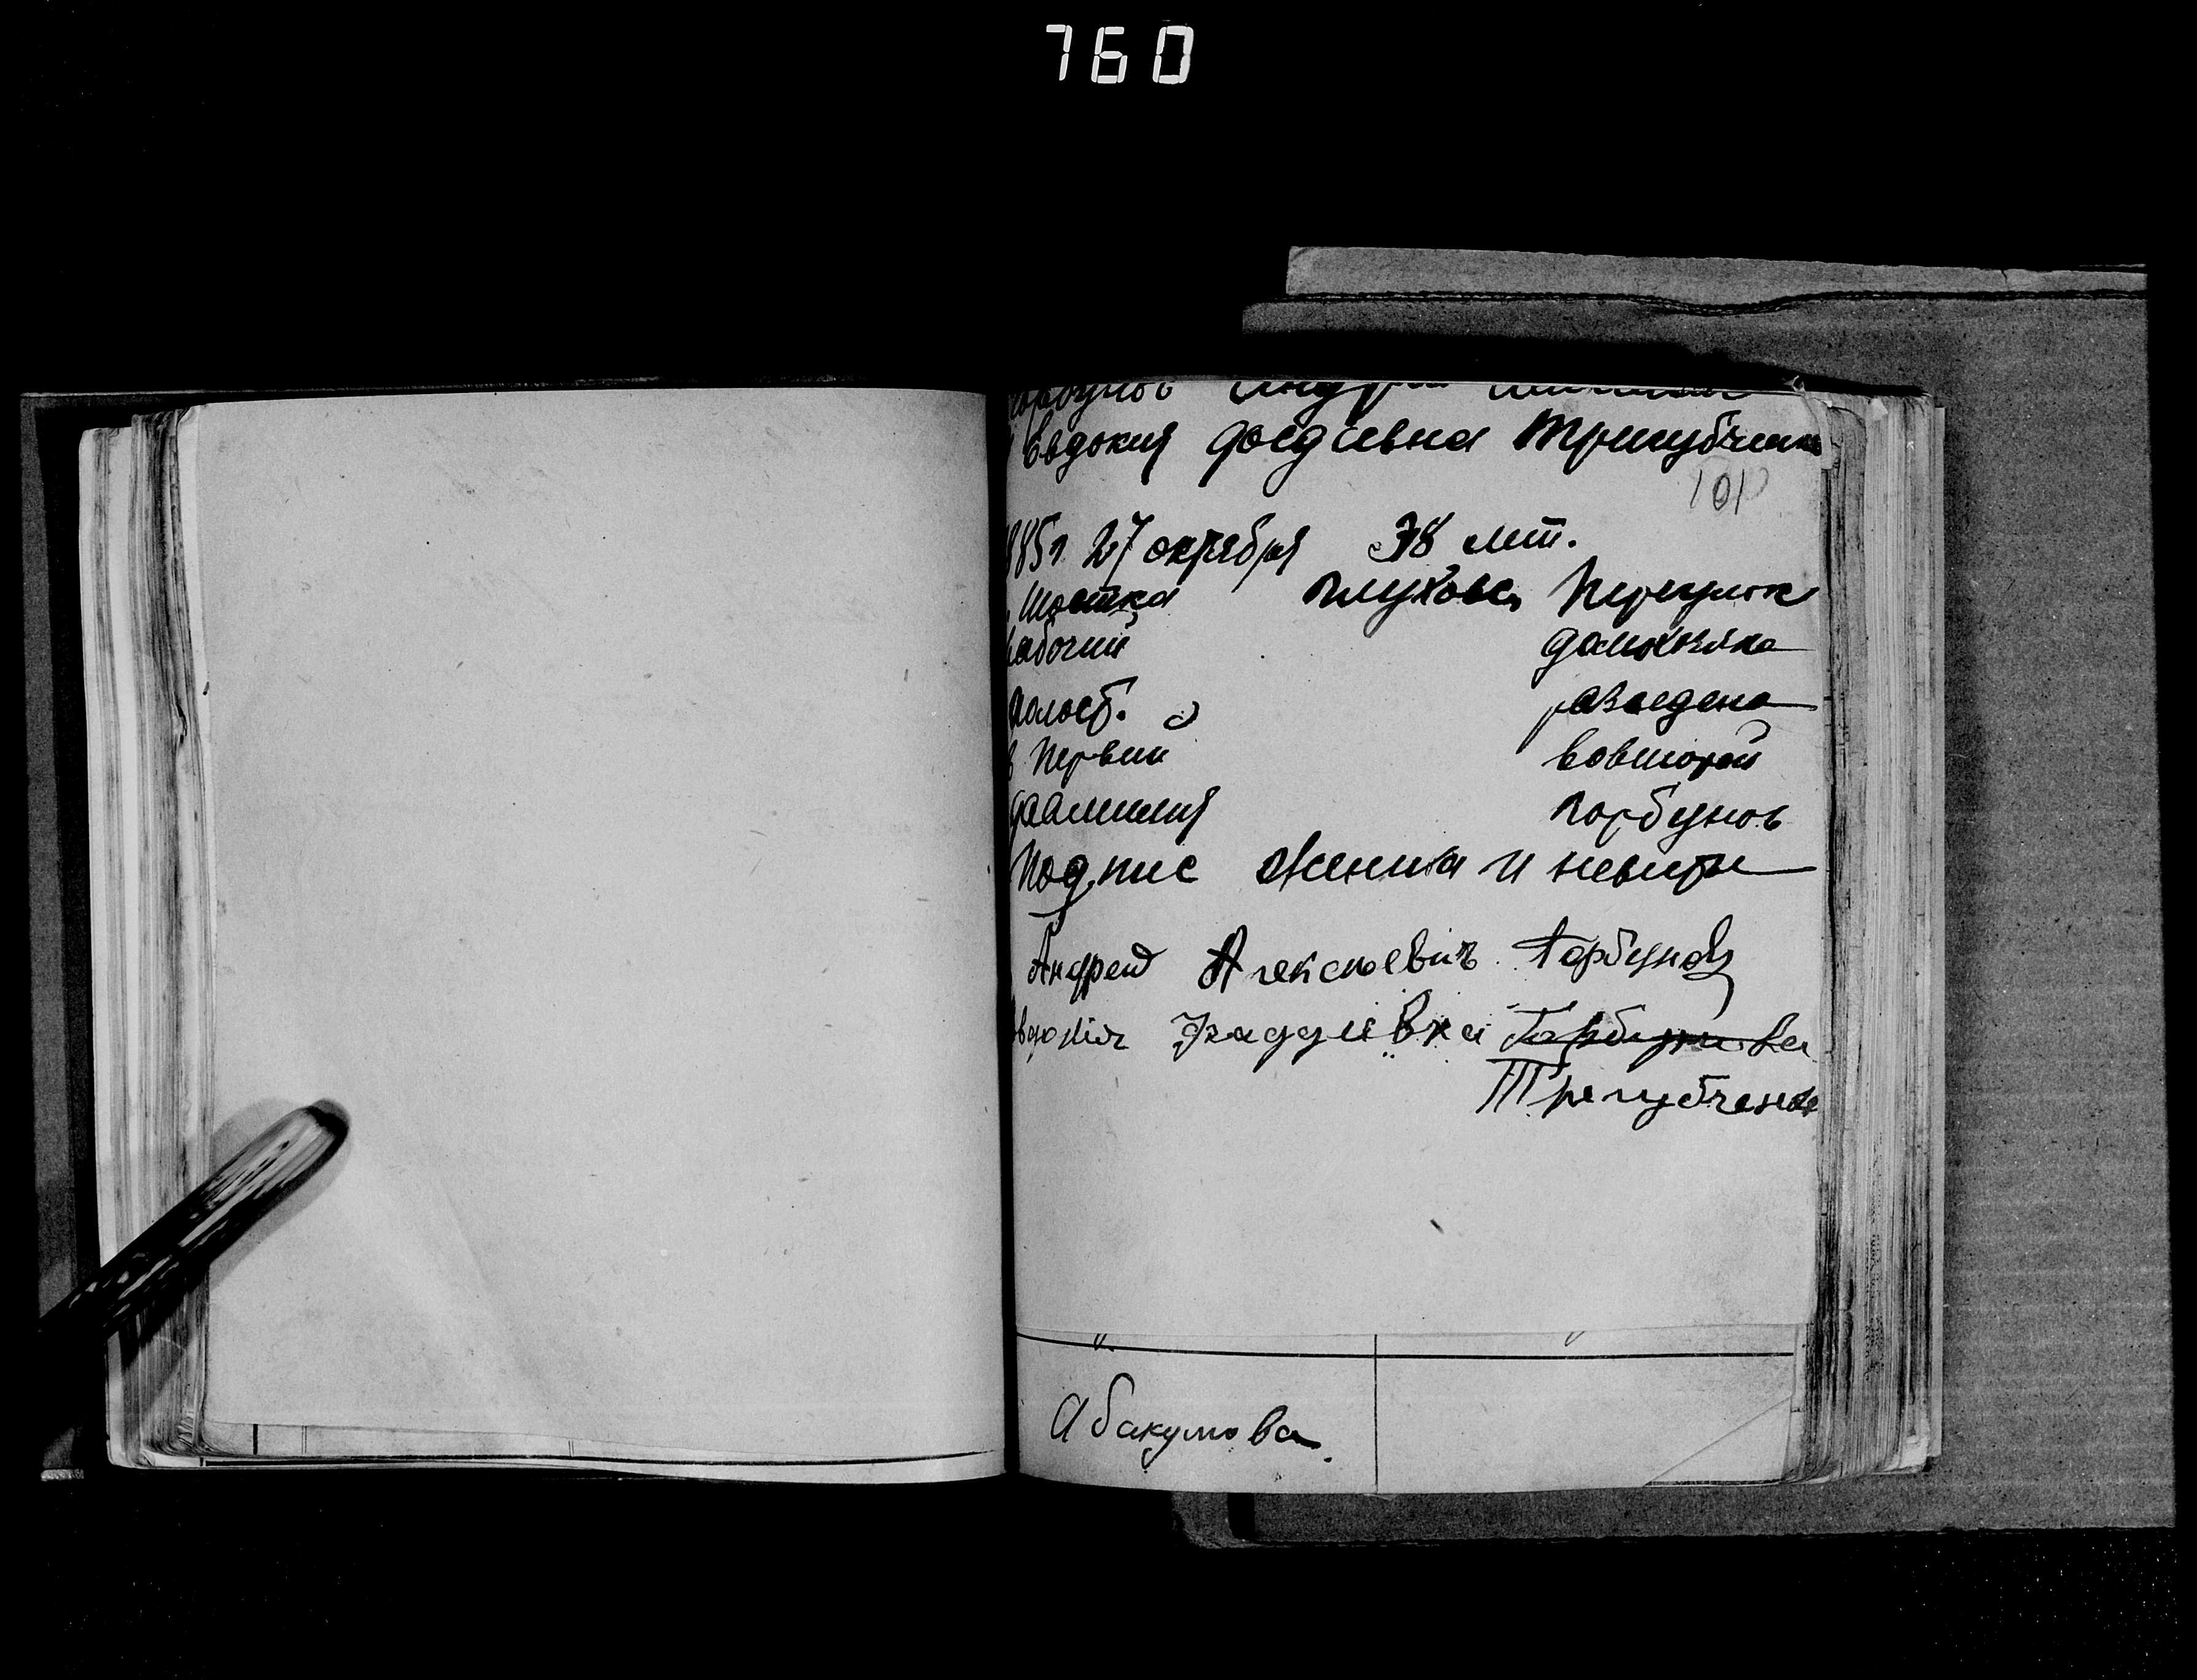 760
Горбунов Андрей
Евдокия фадеевна Тригубченко
101
1885 г. 27 октября 38 лет.
Шостка Глухове, Переулок
рабочий домохозяйка
холост. разведена
в первый вовторой
фамилия Горбунов
Подпис Жениха и невести
Андрей Алексеевич Горбунов
Евдокия Фаддеевна Горбунова
Трегубченко
Абакумова.